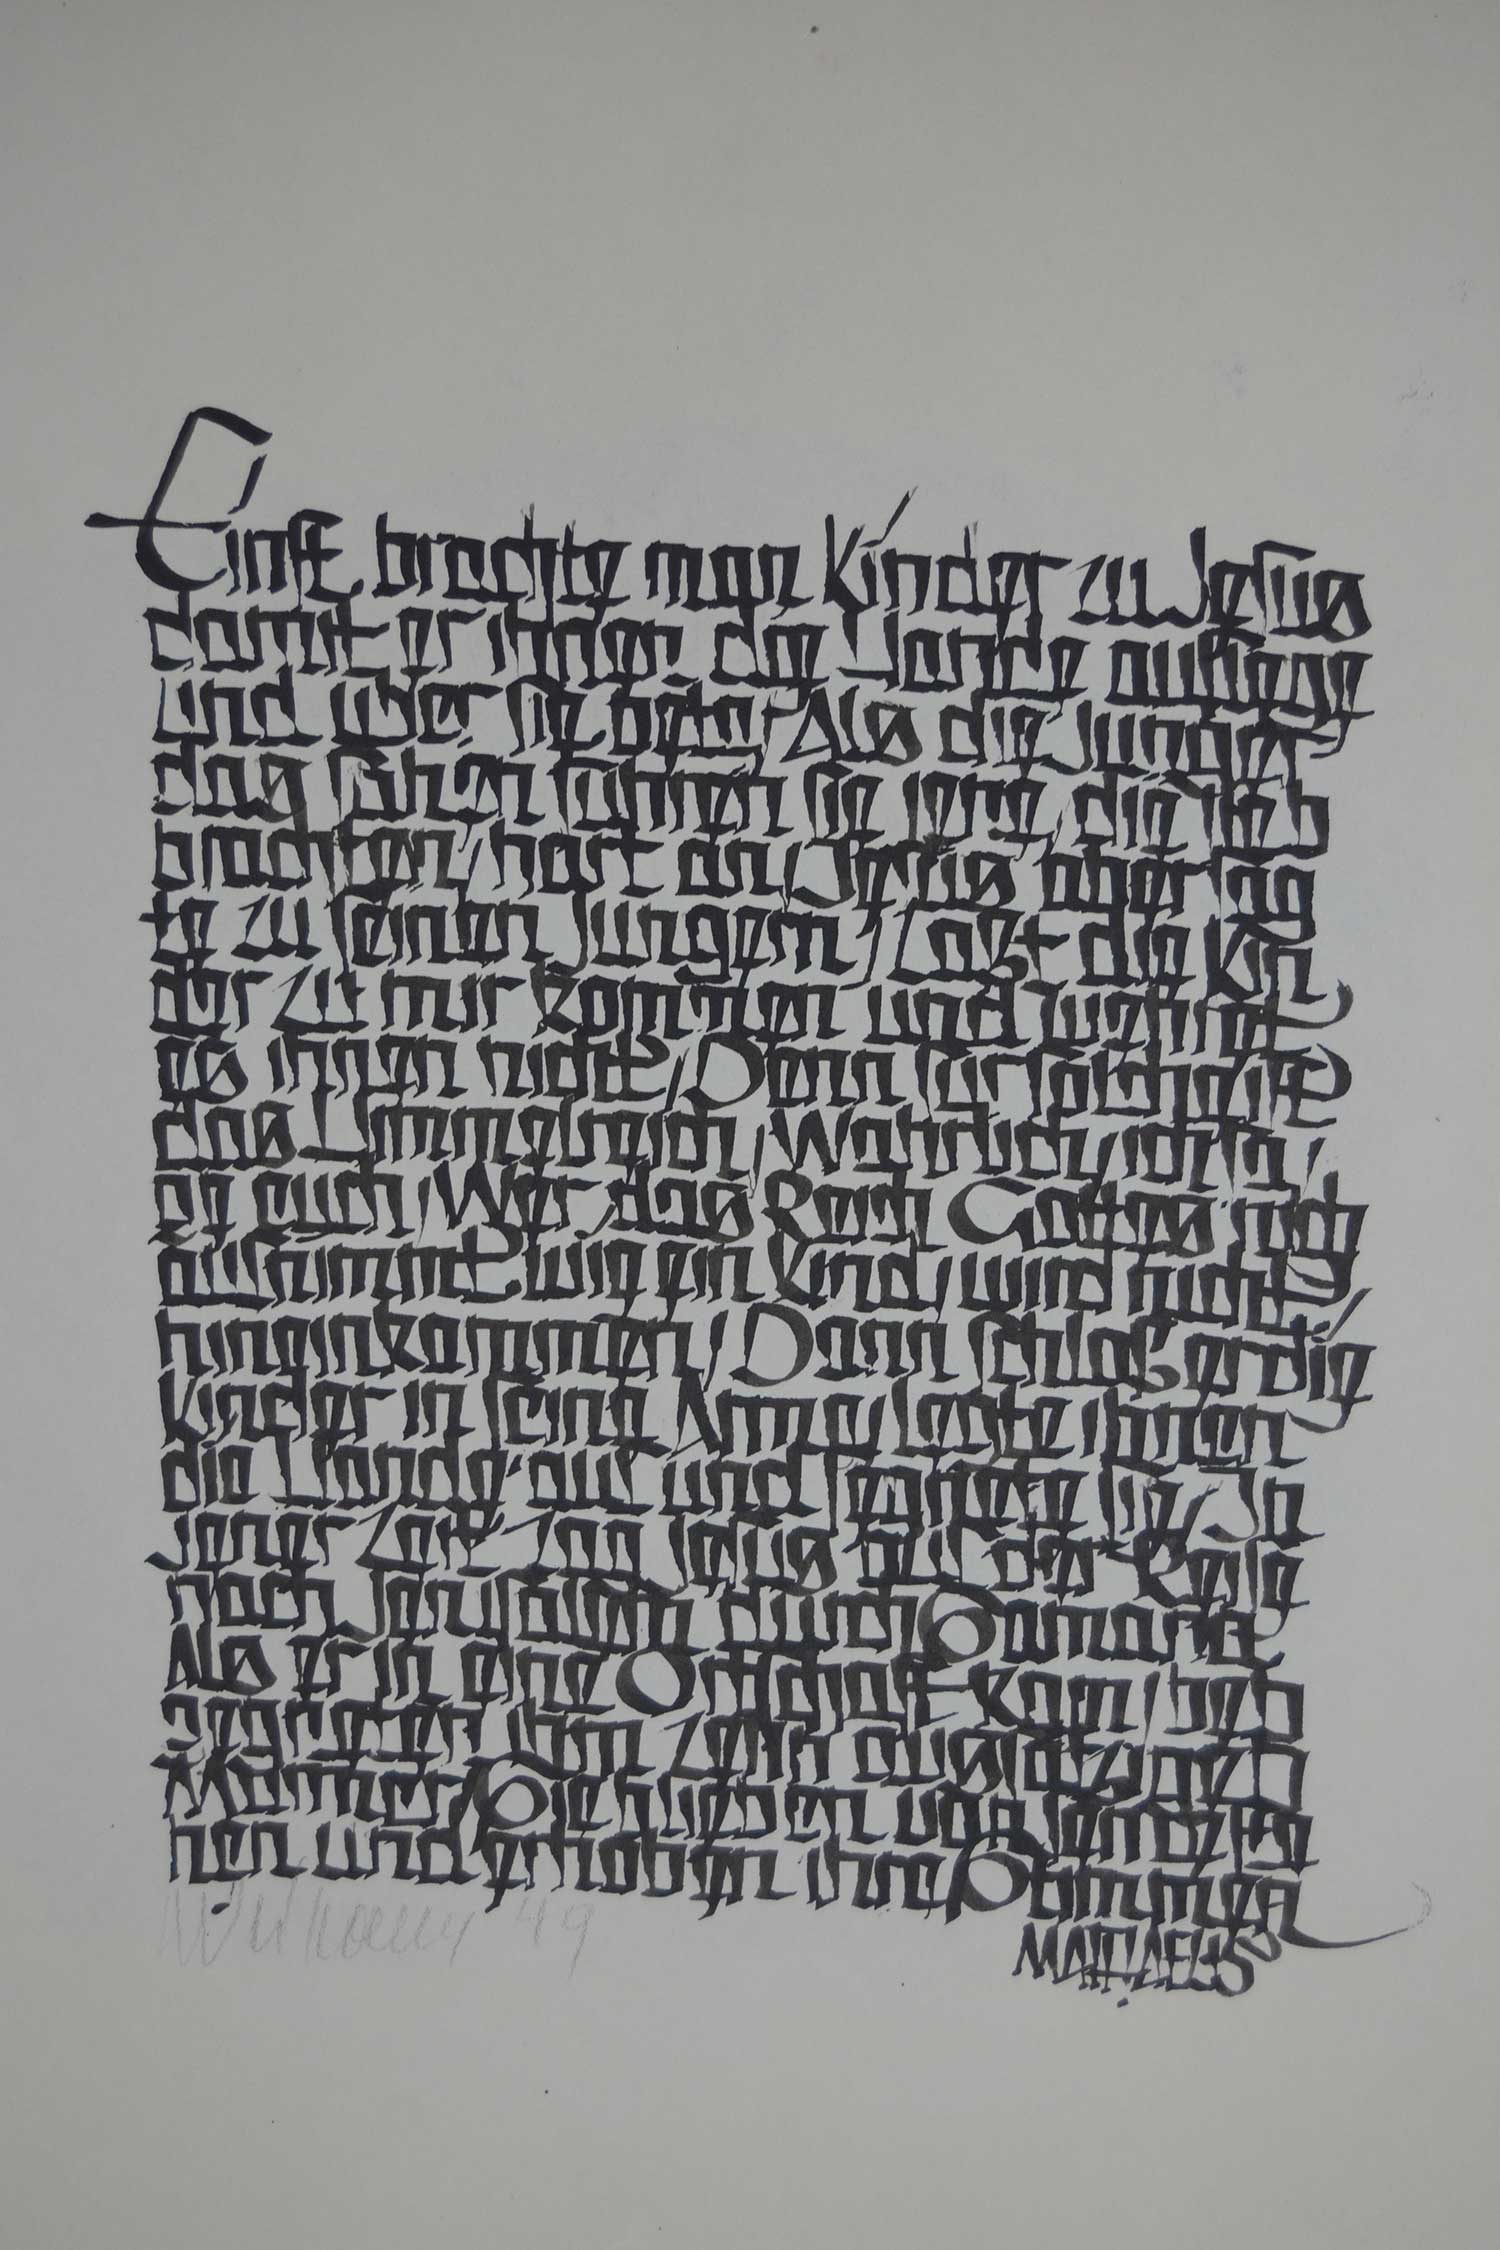 Einst brachte man Kinder zu Jesus
damit er ihnen die Hände auflege
und über sie bete / Als die Jünger
das sahen fuhren sie jene, die sie
brachten / hart an / Jesus aber sag
te zu seinen Jüngern / Laszt die Kin
der zu mir kommen und wehrt
es ihnen nicht / Denn für solche ist
das Himmelreich / Wahrlich, ich sa
ge euch / Wer das Reich Gottes nicht
aufnimmt wie ein Kind, wird nicht
hineinkommen / Dann schloß er die
Kinder in seine Arme, legte ihnen
die Hände auf und segnete sie / In
jener Zeit zog Jesus auf der Reise
nach Jerusalem durch Samaria
Als er in eine Ortschaft kam,
gegneten ihm zehn aussätzige
Männer / Sie blieben von ferne ste
hen und erhoben ihre Stimmen
MATTHAEUS